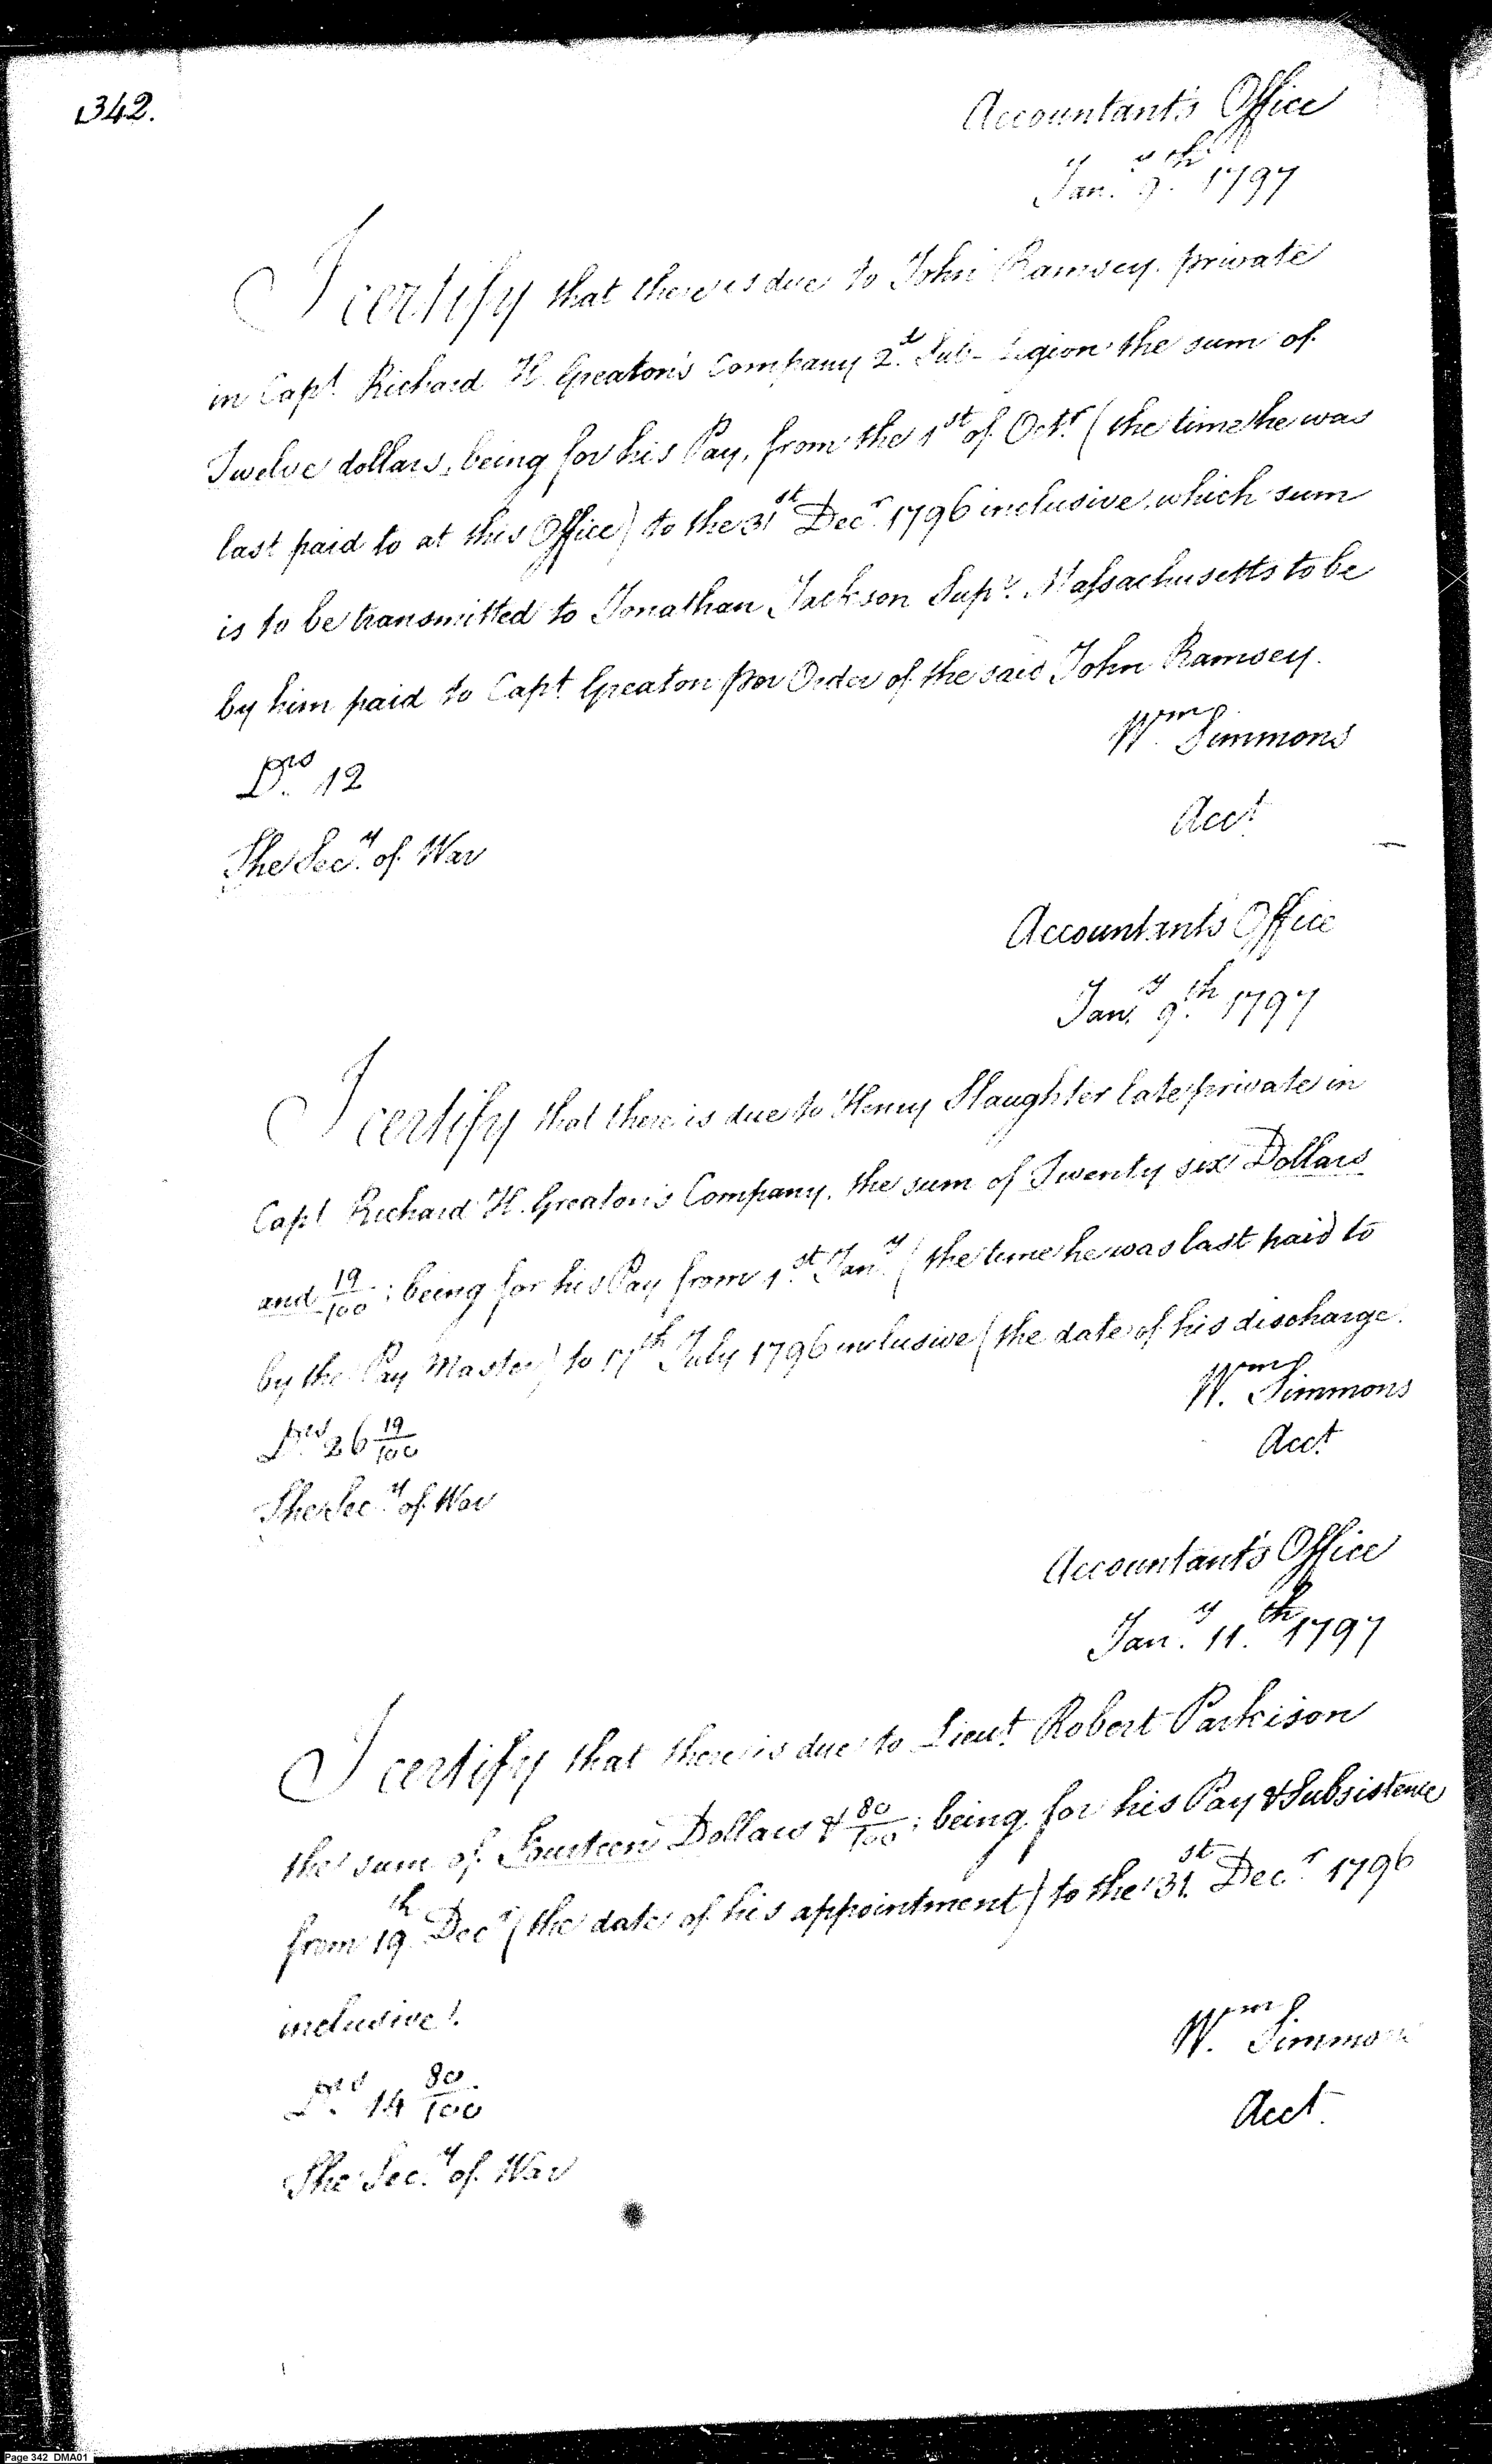 342.
Accountant's Office
Jany. 9th. 1797
I certify that there is due to John Ramsey. private
in Capt. Richard H. Greaton's Company 2d. Sub-Legion the sum of
Twelve dollars, being for his Pay, from the 1st of Octr. (the time he was
last paid to at this Office) to the 31st Decr. 1796 inclusive, which sum
is to be transmitted to Jonathan Jackson Supr. Massachusetts to be
by him paid to Capt. Greaton per Order of the said John Ramsey.
Wm. Simmons
Drs. 12
Acct.
The Secy. of War
Accountants Office
Jany. 9th. 1797
I certify that there is due to Henry Slaughter late private in
Capt Richard H. Greaton's Company. the sum of Twenty six Dollars
and 19/100; being for his Pay from 1st. Jany. (the time he was last paid to
by the Pay Master) to 17th July 1796 inclusive (the date of his discharge.
Wm. Simmons
Drs. 26 19/100
Acct.
The Secy. of War
Accountant's Office
Jany. 11.th 1797
I certify that there is due to Lieut. Robert Parkison
the sum of Fourteen Dollars & 80/100; being for his Pay & Subsistence
from 19th. Decr. (the date of his appointment) to the 31st. Decr. 1796
inclusive.
Wm. Simmons
Drs. 14 80/100
Acct.
The Secy. of War
Page 342 DMA01